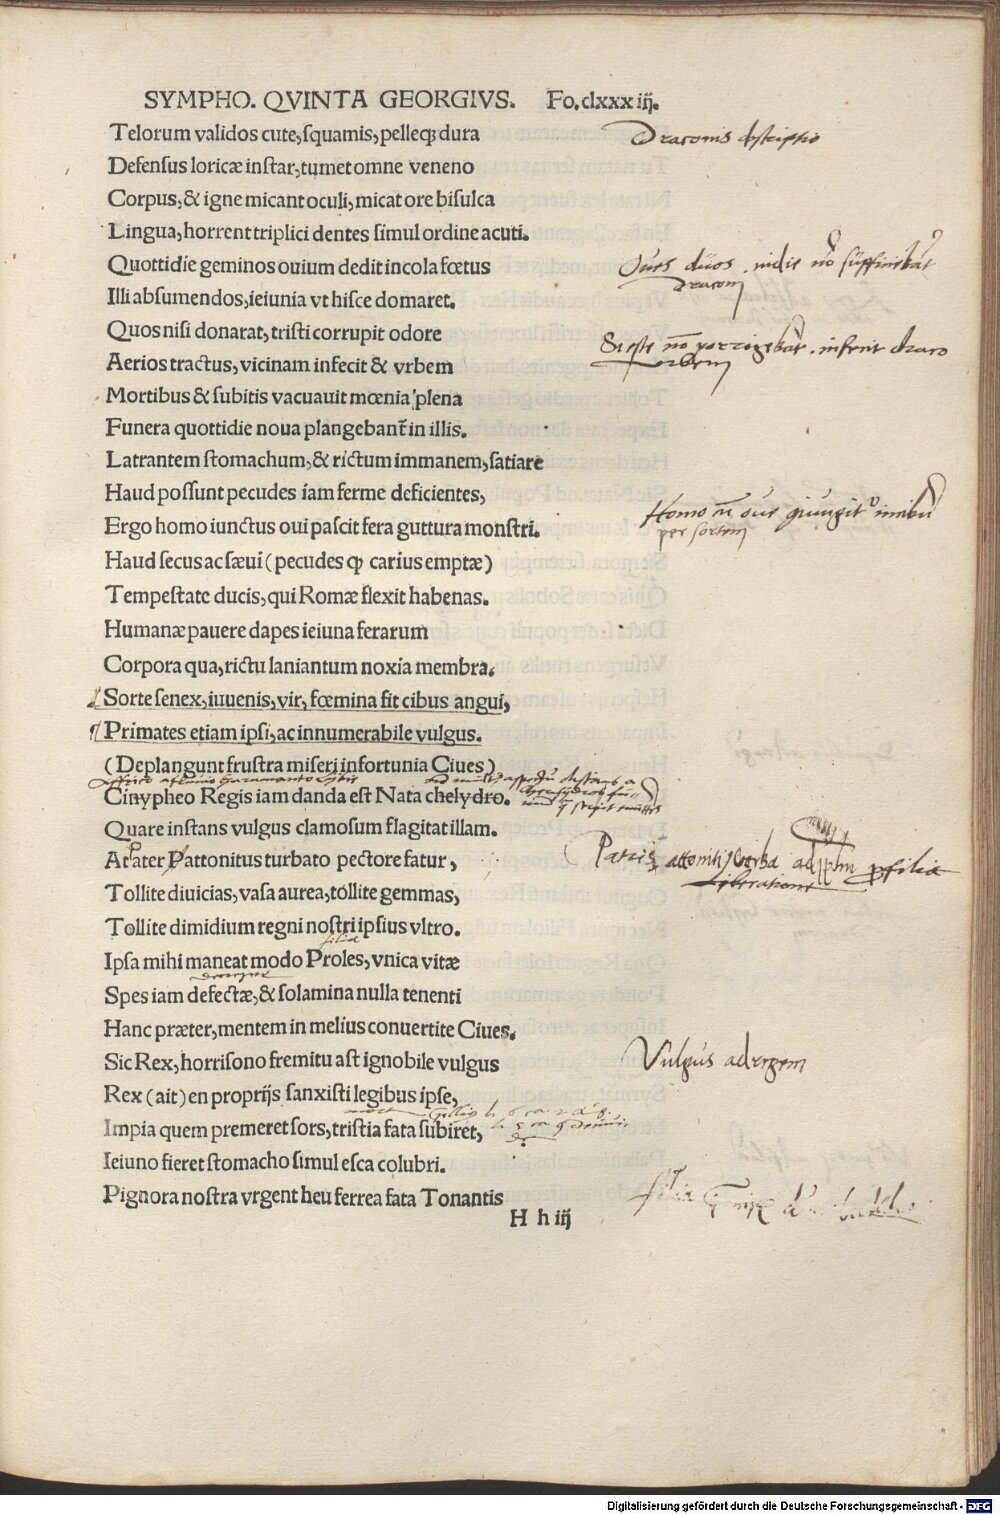 SYMPHO. QVINTA GEORGIVS. Fo. clxxx iij.
Telorum validos cute, squamis, pelleqꝫ dura
Draconis descriptio
Defensus loricæ instar, tumet omne veneno
Corpus, & igne micant oculi, micat ore bisulca
Lingua, horrent triplici dentes simul ordine acuti.
Quottidie geminos ouium dedit incola fœtus
Oues duos
draconj
Illi absumendos, ieiunia vt hisce domaret.
Quos nisi donarat, tristi corrupit odore
draco
Aerios tractus, vicinam infecit & vrbem
vrbem
Mortibus & subitis vacuauit mœnia plena
Funera quottidie noua plangebant̃ in illis.
Latrantem stomachum, & rictum immanem, satiare
Haud possunt pecudes iam ferme deficientes,
Ergo homo iunctus oui pascit fera guttura monstri.
Homo cū oue
per sortem
Haud secus ac sæui (pecudes ꝙ carius emptæ)
Tempestate ducis, qui Romæ flexit habenas.
Humanæ pauere dapes ieiuna ferarum
Corpora qua, rictu laniantum noxia membra.
Sorte senex, iuuenis, vir, fœmina fit cibus angui,
Primates etiam ipsi, ac innumerabile vulgus.
(Deplangunt frustra miseri infortunia Ciues)
Cinypheo Regis iam danda est Nata chelydro.
Quare instans vulgus clamosum flagitat illam.
At pater attonitus turbato pectore fatur,
Patris attoniti verba ad pplm p filiæ
liberatione
Tollite diuicias, vasa aurea, tollite gemmas,
Tollite dimidium regni nostri ipsius vltro.
filia
Ipsa mihi maneat modo Proles, vnica vitæ
Spes iam defectæ, & solamina nulla tenenti
Hanc præter, mentem in melius conuertite Ciues.
Sic Rex, horrisono fremitu ast ignobile vulgus
Vulgus ad regem
Rex (ait) en proprijs sanxisti legibus ipse,
Impia quem premeret sors, tristia fata subiret,
Ieiuno fieret stomacho simul esca colubri.
Pignora nostra vrgent heu ferrea fata Tonantis
filia
H h iij
Digitalisierung gefördert durch die Deutsche Forschungsgemeinschaft - DFG